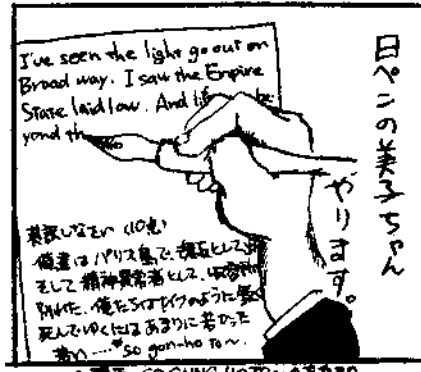 I've seen the light go out on
Broad way. I saw the Empire
State laid low. And life be
yond th
日ペンの美子ちゃん
やります。
英訳しなさい (10点)
俺達はパリス島で、
そして精神異常者として、
別れた。俺たちはセイフのように
死んでゆくにはあまりに若かった
若い……"so gon-ho to~.